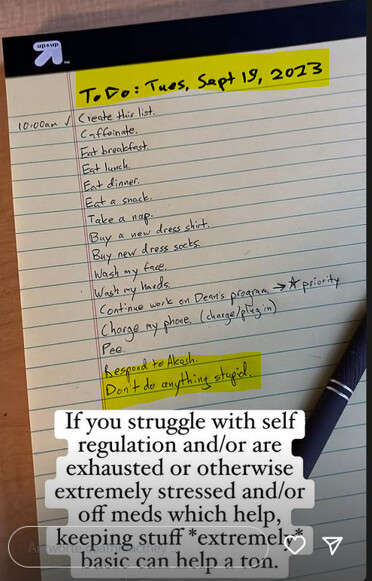 upsup
To Do: Tues, Sept 19, 2023
10:00am ✓ Create this list.
Caffeinate.
Eat breakfast.
Eat lunch.
Eat dinner.
Eat a snack.
Take a nap.
Buy a new dress shirt.
Buy new dress socks.
Wash my face.
Wash my hands.
Continue work on Dean's program → ☆ priority
Charge my phone. (charge/plug in)
Pee.
Respond to Akash.
Don't do anything stupid.
If you struggle with self
regulation and/or are
exhausted or otherwise
extremely stressed and/or
off meds which help,
keeping stuff *extremely*
basic can help a ton.